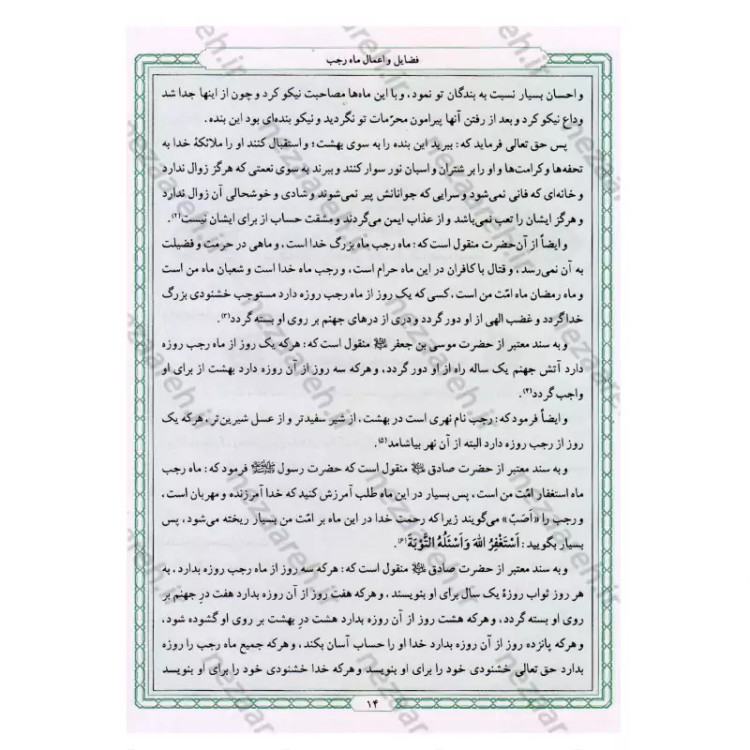 فضایل و اعمال ماه رجب
و احسان بسیار نسبت به بندگان تو نمود، و با این ماه‌ها مصاحبت نیکو کرد و چون از اینها جدا شد
وداع نیکو کرد و بعد از رفتن آنها پیرامون محرّمات تو نگردید و نیکو بنده‌ای بود این بنده.
پس حق تعالی فرماید که: ببرید این بنده را به سوی بهشت؛ و استقبال کنند او را ملائکهٔ خدا به
تحفه‌ها و کرامت‌ها و او را بر شتران و اسبان نور سوار کنند و ببرند به سوی نعمتی که هرگز زوال ندارد
و خانه‌ای که فانی نمی‌شود و سرایی که جوانانش پیر نمی‌شوند و شادی و خوشحالی آن زوال ندارد
و هرگز ایشان را تعب نمی‌باشد و از عذاب ایمن می‌گردند و مشقت حساب از برای ایشان نیست(۲).
و ایضاً از آن‌حضرت منقول است که: ماه رجب ماه بزرگ خدا است، و ماهی در حرمت و فضیلت
به آن نمی‌رسد، و قتال با کافران در این ماه حرام است، و رجب ماه خدا است و شعبان ماه من است
و ماه رمضان ماه امّت من است، کسی که یک روز از ماه رجب روزه دارد مستوجب خشنودی بزرگ
خدا گردد و غضب الهی از او دور گردد و دری از درهای جهنم بر روی او بسته گردد(۳).
و به سند معتبر از حضرت موسی بن جعفر ﷷ منقول است که: هرکه یک روز از ماه رجب روزه
دارد آتش جهنم یک ساله راه از او دور گردد، و هرکه سه روز از آن روزه دارد بهشت از برای او
واجب گردد(۴).
و ایضاً فرمود که: رجب نام نهری است در بهشت، از شیر سفیدتر و از عسل شیرین‌تر، هرکه یک
روز از رجب روزه دارد البته از آن نهر بیاشامد(۵).
و به سند معتبر از حضرت صادق ﷷ منقول است که حضرت رسول ﷺ فرمود که: ماه رجب
ماه استغفار امّت من است، پس بسیار در این ماه طلب آمرزش کنید که خدا آمرزنده و مهربان است،
و رجب را «اَصَبّ» می‌گویند زیرا که رحمت خدا در این ماه بر امّت من بسیار ریخته می‌شود، پس
بسیار بگویید: اَسْتَغْفِرُ اللّٰهَ وَ اَسْئَلُهُ التَّوْبَةَ(۶).
و به سند معتبر از حضرت صادق ﷷ منقول است که: هرکه سه روز از ماه رجب روزه بدارد، به
هر روز ثواب روزهٔ یک سال برای او بنویسند، و هرکه هفت روز از آن روزه بدارد هفت درِ جهنم بر
روی او بسته گردد، و هرکه هشت روز از آن روزه بدارد هشت درِ بهشت بر روی او گشوده شود،
و هرکه پانزده روز از آن روزه بدارد خدا او را حساب آسان بکند، و هرکه جمیع ماه رجب را روزه
بدارد حق تعالی خشنودی خود را برای او بنویسد و هرکه خدا خشنودی خود را برای او بنویسد
۱۴
nezaareh.ir